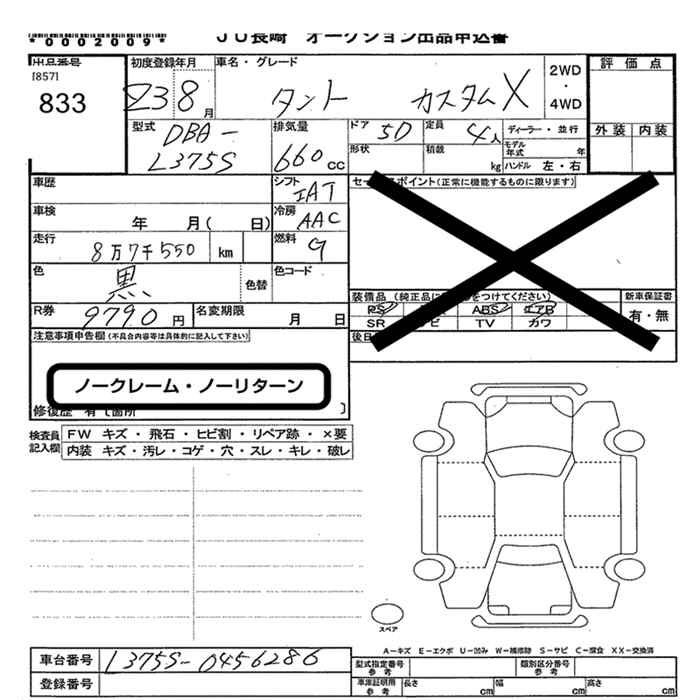 *0002009*
JU長崎 オークション出品申込書
出品番号
[857]
833
初度登録年月
23 8月
車名・グレード
タント カスタムX
2WD
・
4WD
評価点
外装 内装
型式
DBA-
L375S
排気量
660cc
ドア 5D
定員 4人
ディーラー・並行
形状
積載 kg
モデル年式 年
ハンドル 左・右
車歴
シフト IAT
車検 年 月( 日)
冷房 AAC
走行 8万7千550 km
燃料 G
色 黒
色替
色コード
R券 9790円
名変期限 月 日
セー ポイント(正常に機能するものに限ります)
装備品(純正品に をつけてください)
PS ABS エアB
SR ナビ TV カワ
新車保証書
有・無
後日
注意事項申告欄(不具合内容等は具体的に記入して下さい)
ノークレーム・ノーリターン
修復歴 有〔箇所 〕
検査員記入欄
FW キズ・飛石・ヒビ割・リペア跡・×要
内装 キズ・汚レ・コゲ・穴・スレ・キレ・破レ
スペア
A-キズ E-エクボ U-凹み W-補修跡 S-サビ C-腐食 XX-交換済
車台番号 L375S-0456286
登録番号
型式指定番号 参考
類別区分番号 参考
車庫証明用 参考
長さ cm 幅 cm 高さ cm